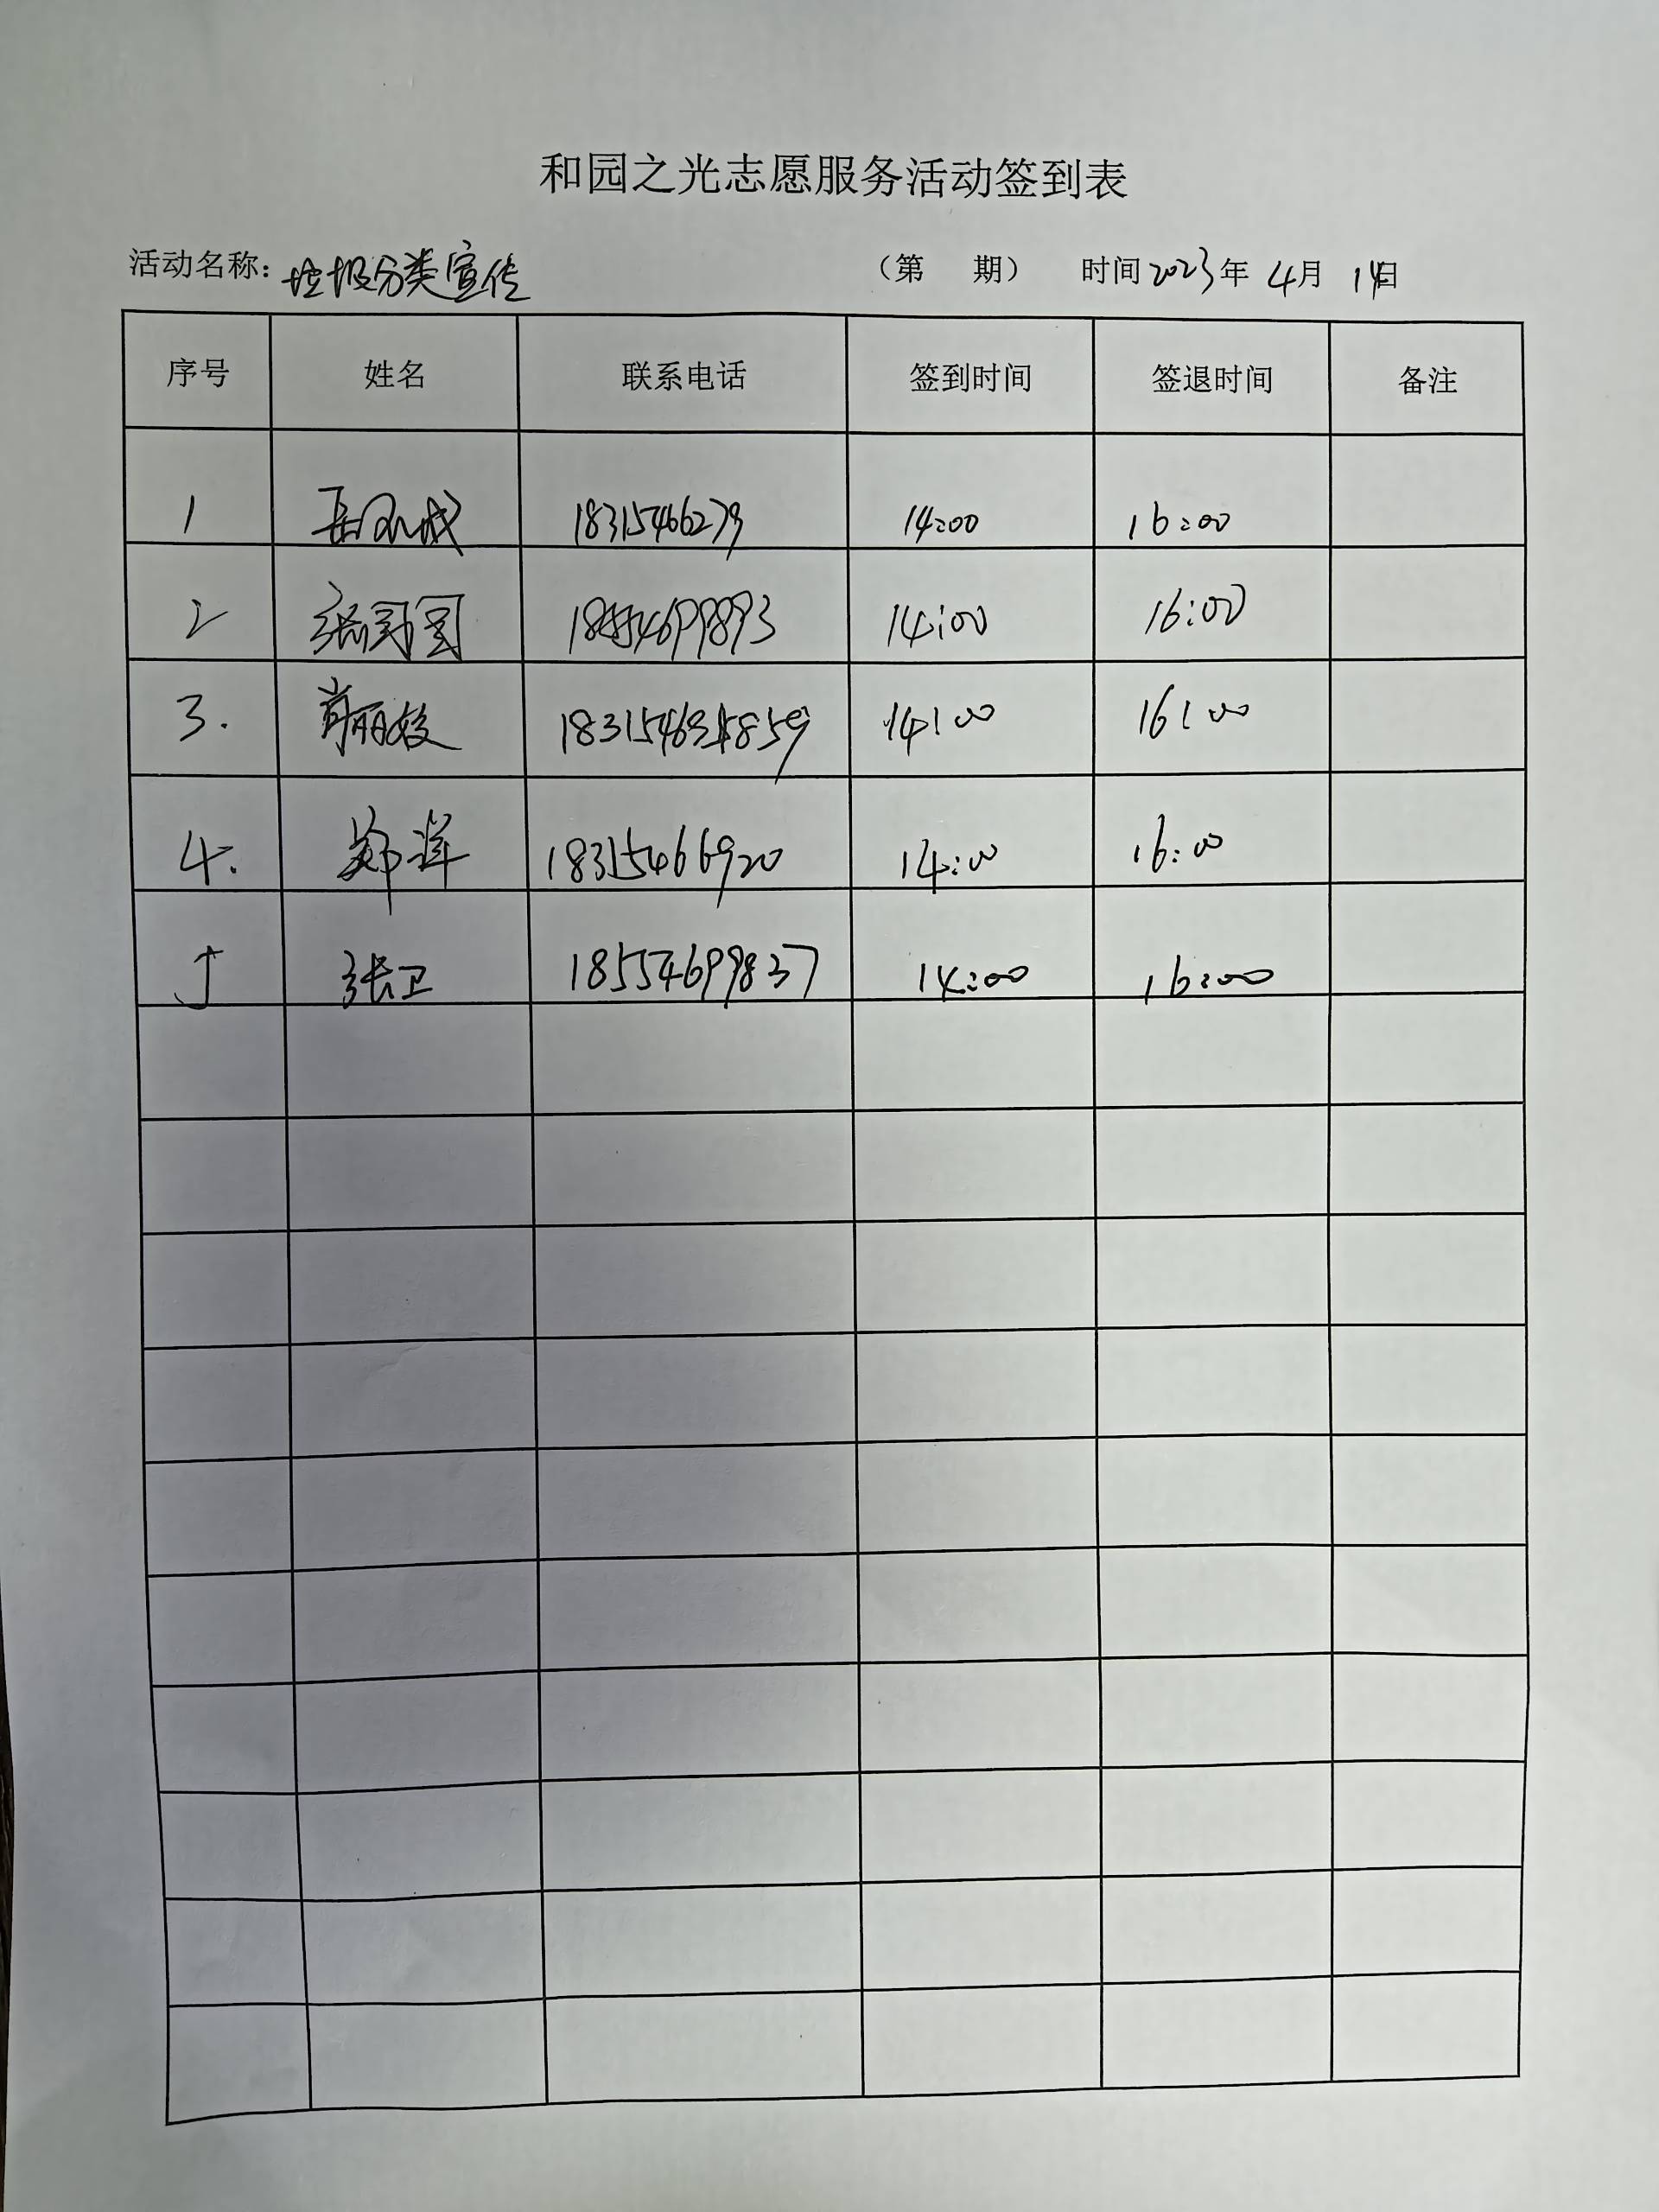 和园之光志愿服务活动签到表
活动名称：垃圾分类宣传 （第 期） 时间2023年 4月 14日
序号 姓名 联系电话 签到时间 签退时间 备注
1 18315466279 14:00 16:00
2 14:00 16:00
3. 肖丽姣 14:00 16:00
4. 郑洋 18315466920 14:00 16:00
5 张卫 18554699837 14:00 16:00